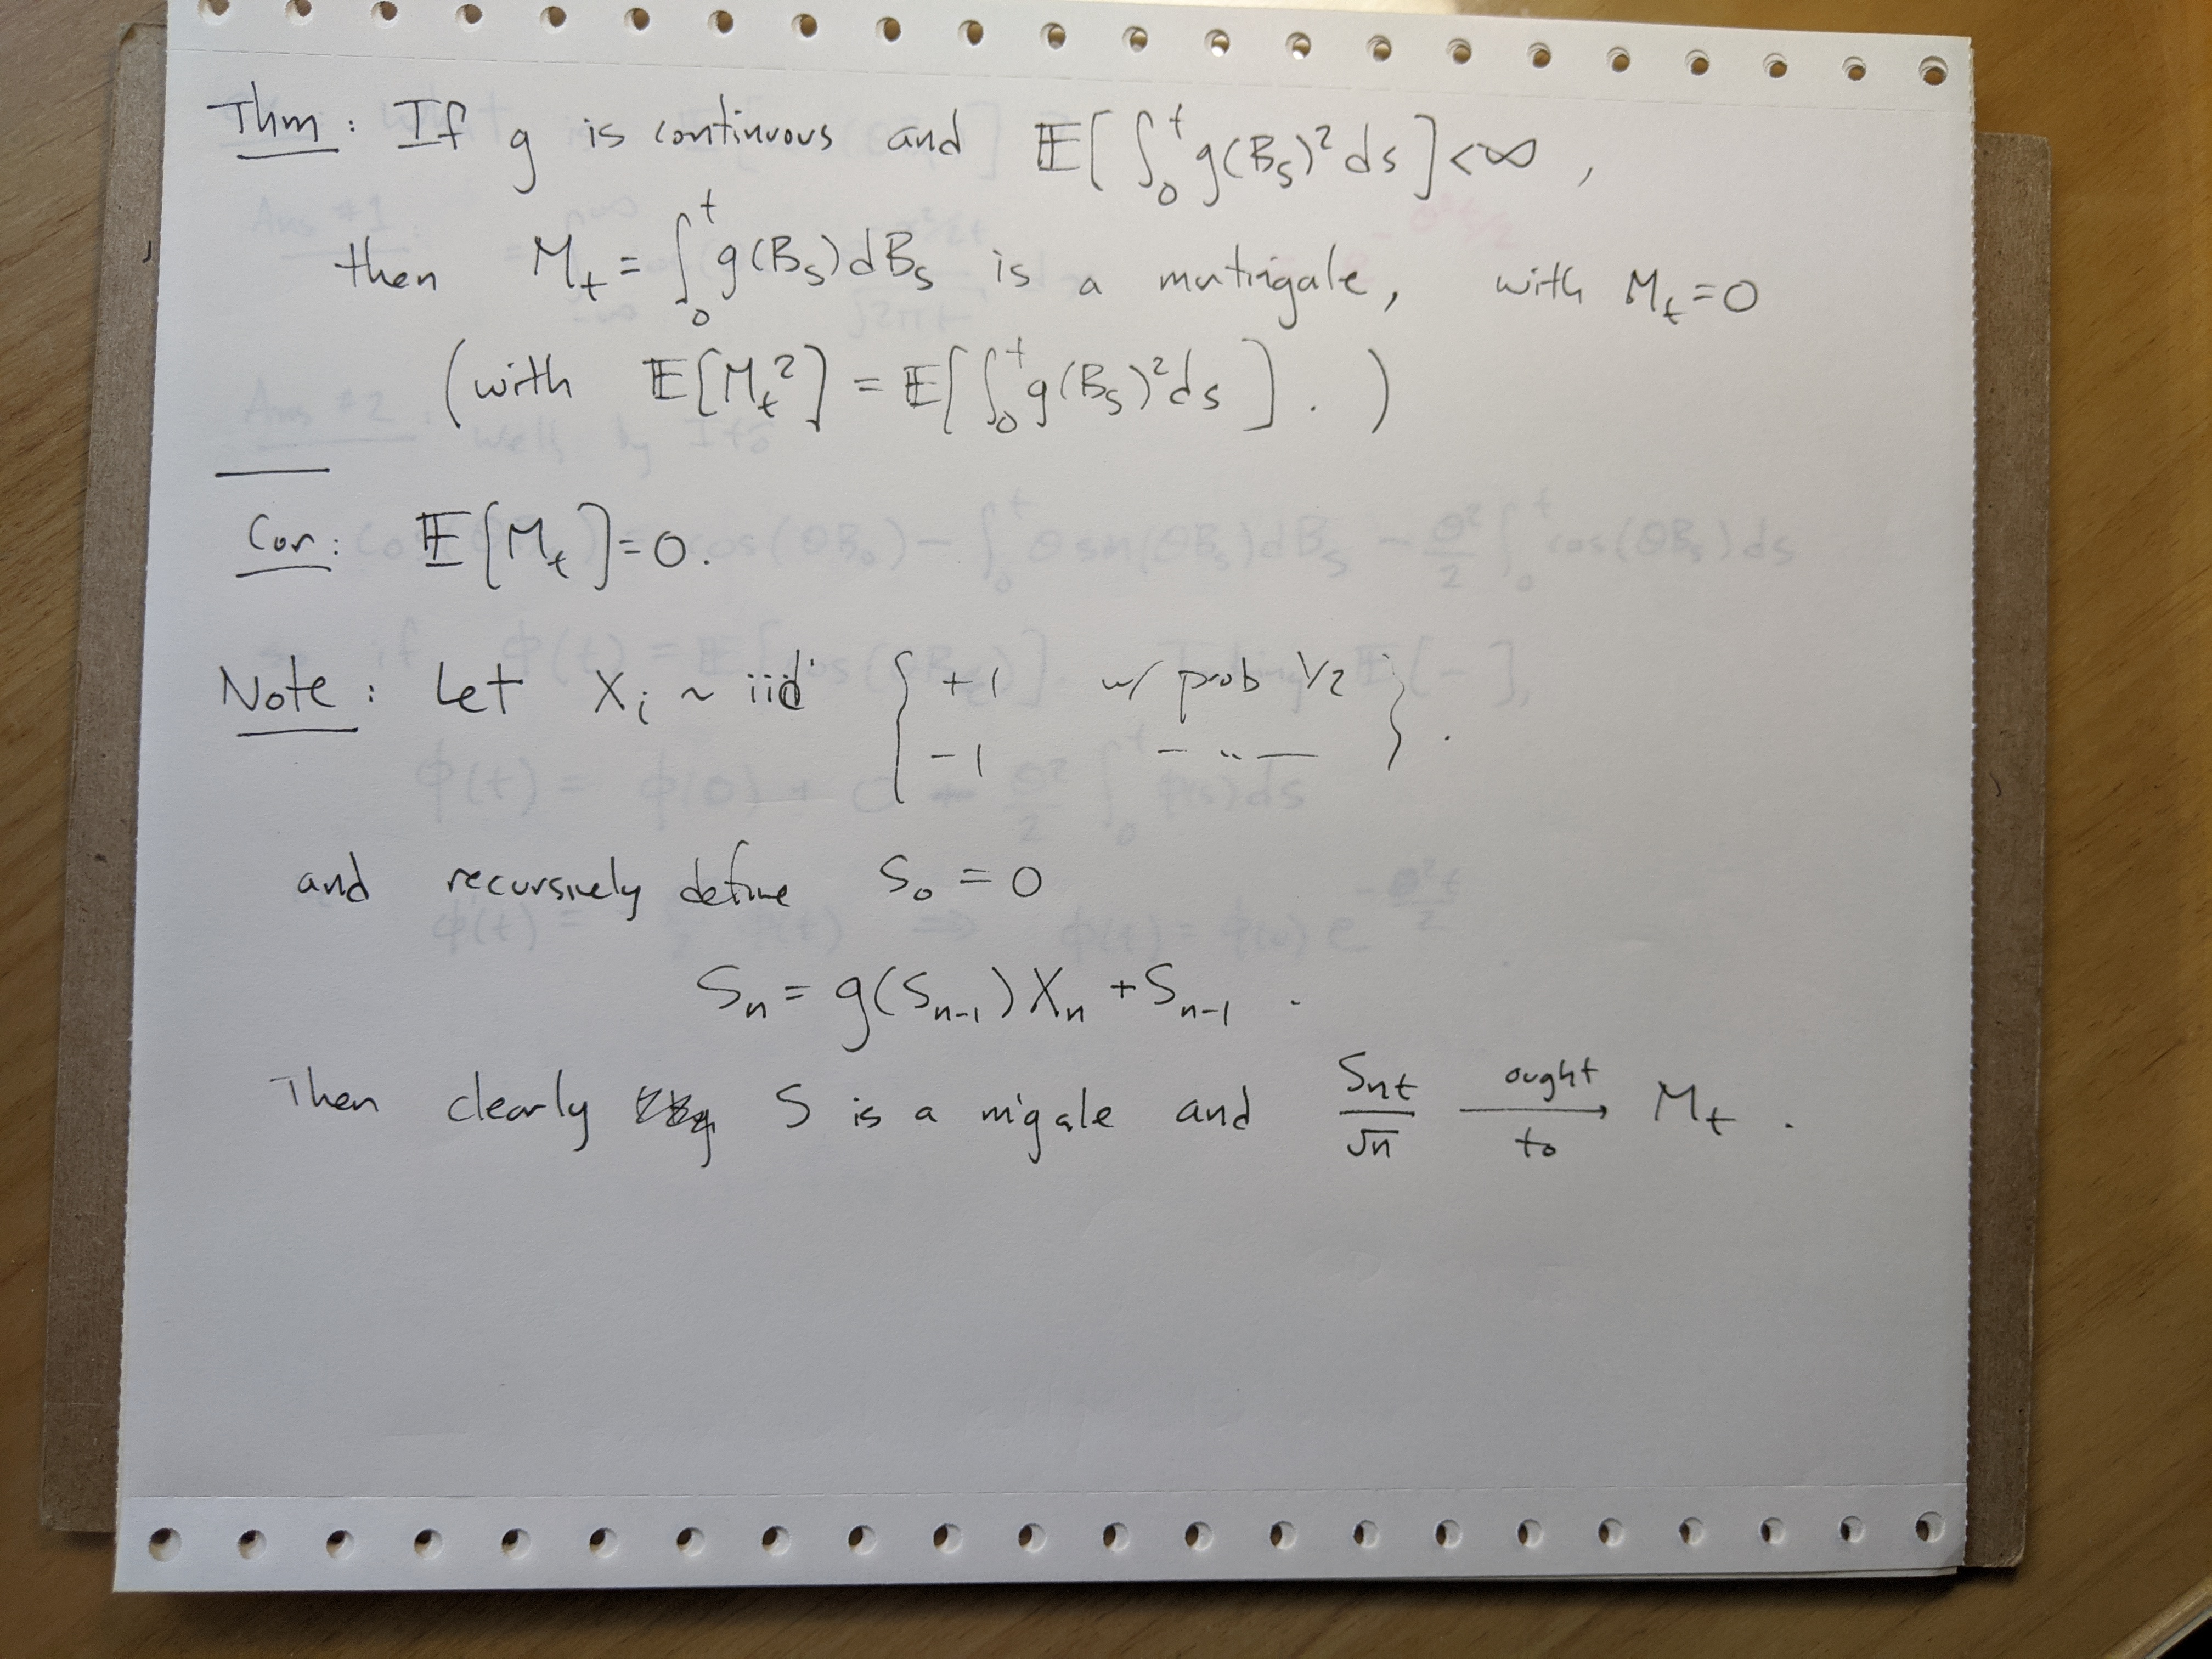 Thm: If g is continuous and 𝔼[∫₀ᵗ g(B_s)² ds] < ∞,
then M_t = ∫₀ᵗ g(B_s) dB_s is a mutingale, with M_t = 0
(with 𝔼[M_t²] = 𝔼[∫₀ᵗ g(B_s)² ds].)
Cor: 𝔼[M_t] = 0.
Note: Let X_i ~ iid { +1 w/ prob 1/2
-1 — ·· — }.
and recursively define S_0 = 0
S_n = g(S_{n-1}) X_n + S_{n-1}.
Then clearly S is a m'gale and S_{nt}/√n ought to → M_t.